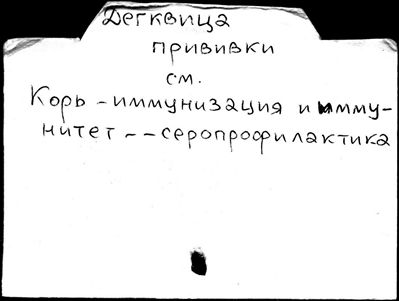 Дегквица
прививки
см.
Корь - иммунизация и имму-
нитет -- серопрофилактика